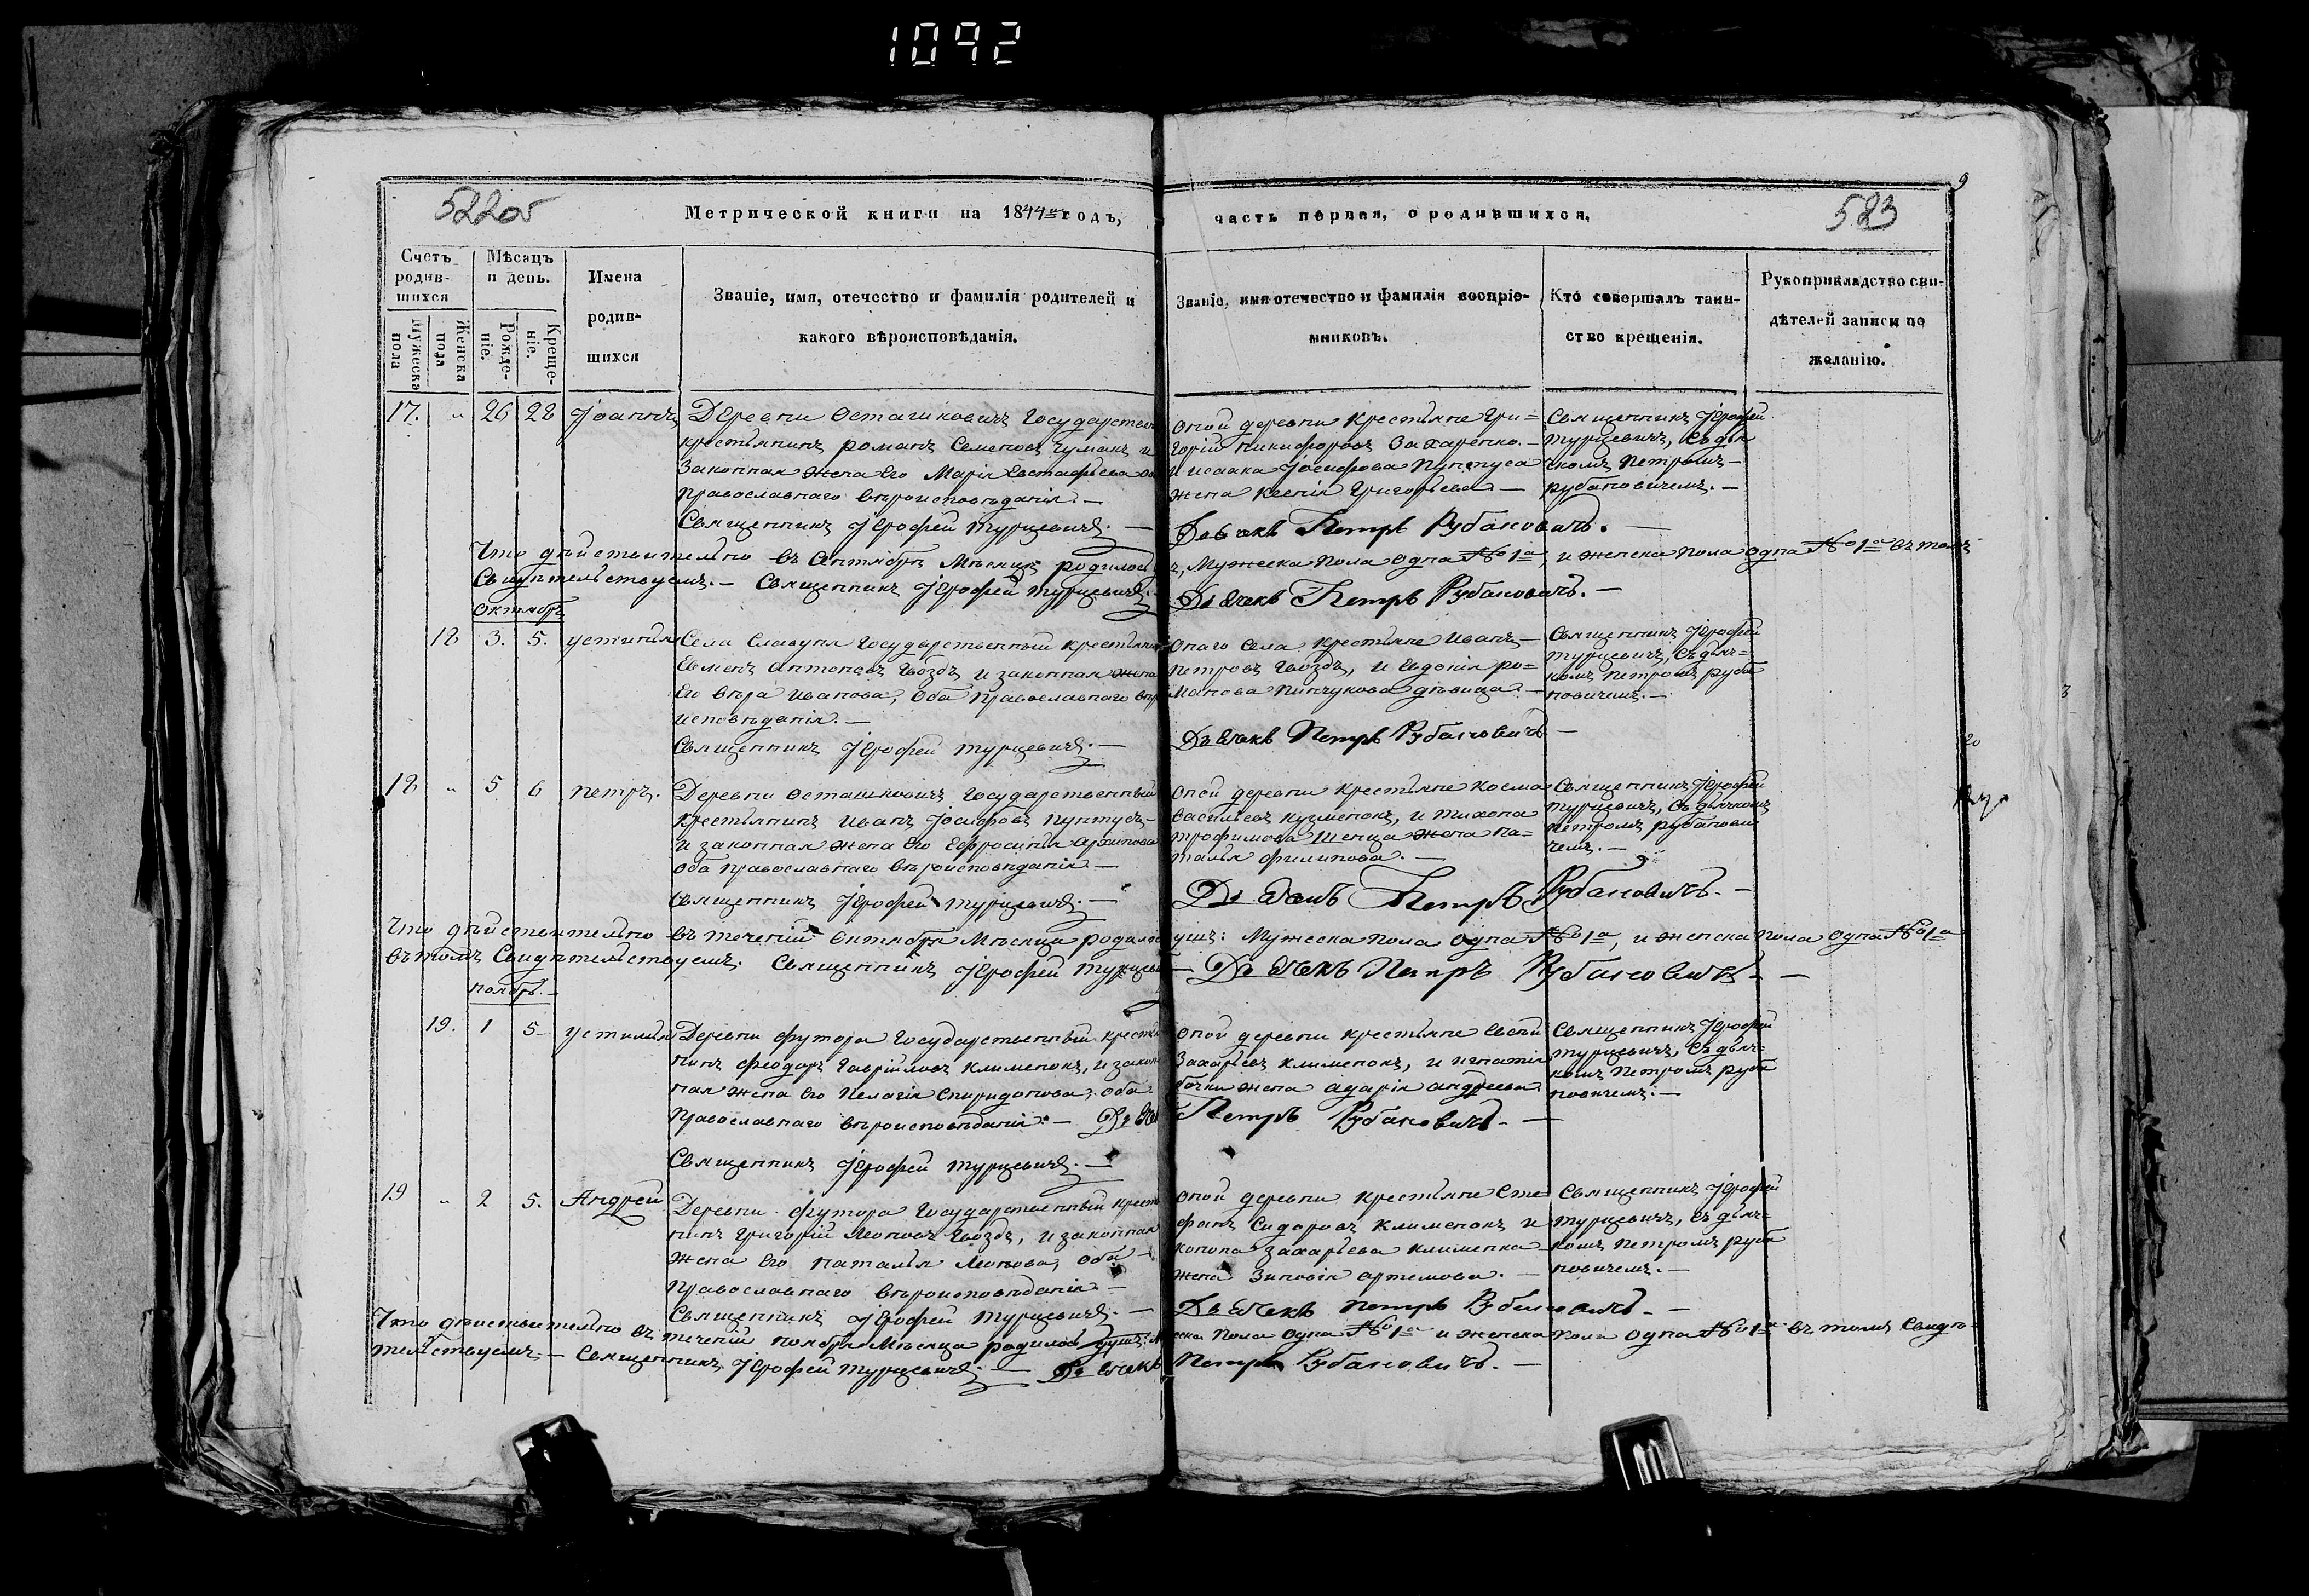 1092
522об
Метрической книги на 1844й годъ,
часть первая, о родившихся,
523
9
Счетъ родив-шихся
Мѣсацъ и день.
Имена родив-шихся
Званіе, имя, отечество и фамилія родителей и какого вѣроисповѣданія.
Званіе, имя отечество и фамилія воспріе-мниковъ.
Кто совершалъ таин-ство крещенія.
Рукоприкладство сви-дѣтелей записи по желанію.
Мужеска пола
Женска пола
Рожде-ніе.
Креще-ніе.
17. „ 26 28 Іоаннъ
Деревни Осташковичъ Государствен
крестьянинъ романъ Семеновъ Чумакъ и
Законная жена Его Марія Евстафьева
православнаго вѣроисповѣданія. —
Священникъ Іерофей Турцевичъ. —
оной деревни крестьяне Гри=
горій Никифоровъ Захаренко. —
и исаака Іосифова Пунтуса
жена Ксенія Григорьева. —
Дьячекъ Петръ Рубановичъ. —
Священникъ Іерофей
турцевичъ, съ дья
чкомъ Петромъ —
рубановичемъ. —
Что дѣйствительно въ Сентябрѣ Мѣсяцѣ родилось
, Мужеска пола одна №1а, и женска пола одна №1а въ томъ
Свидѣтельствуемъ. — Священникъ Іерофей турцевичъ.
Дьячекъ Петръ Рубановичъ. —
Октябрь
18 3. 5. устинія
Села Славуня Государственный крестьянинъ
Евменъ Антоновъ Гвоздь, и законная жена
Ег вѣра Иванова, оба православнаго вѣр
исповѣданія. —
Священникъ Іерофей турцевичъ. —
онаго Села крестьяне Иванъ —
Петровъ Гвоздь, и Евдокія ро=
манова Пинчукова дѣвица. —
Дьячекъ Петръ Рубановичъ —
Священникъ Іерофей
турцевичъ, съ дья=
комъ Петромъ руба
новичемъ. —
18 „ 5 6 петръ.
Деревни Осташковичъ Государственный
крестьянинъ Иванъ Іосифовъ Пунтусъ —
и законная жена Его Ефросинія Архипова
оба православнаго вѣроисповѣданія —
Священникъ Іерофей турцевичъ. —
оной деревни крестьяне Косма
Васильевъ кузменокъ, и тихона
трофимова Шенца жена На=
талья филипова. —
Дьячекъ Петръ Рубановичъ. —
Священникъ Іерофей
турцевичъ, съ дьячкомъ
петромъ рубанови
чемъ. —
Что дѣйствительно въ теченій Октября Мѣсяца родилос
ушъ: Мужеска пола одна №1а, и женска пола одна №1а
въ томъ Свидѣтельствуемъ. Священникъ Іерофей турцев
— Дьячекъ Петръ Рубановичъ. —
ноябрь. —
19. 1 5 устинія
Деревни футора Государственный крестья
нинъ Феодоръ Гавріиловъ Клименокъ, и закон
ная жена Его Пелагія Спиридонова, оба
православнаго вѣроисповѣданія. — Дьяче
Священникъ Іерофей турцевичъ. —
оной деревни крестьяне
Захарьевъ Клименокъ, и игнатія
жена Андреева
Петръ Рубановичъ. —
Священникъ Іерофей
турцевичъ, съ дьяч=
комъ Петромъ руба
новичемъ. —
19 „ 2 5. Андрей
Деревни футора Государственный крестья
нинъ Григорій Леоновъ Гвоздь, и законная
жена Его наталья Леонова, оба —
православнаго вѣроисповѣданія —
Священникъ Іерофей турцевичъ. —
оной деревни крестьяне Сте
фанъ Сидоровъ Клименокъ и
конона захарьева Клименка
жена Зиновія артемова. —
Дьячекъ Петръ Рубановичъ. —
Священникъ Іерофей
турцевичъ, съ дьяч=
комъ Петромъ руба
новичемъ. —
Что дѣйствительно въ теченій ноября Мѣсяца родилос душъ: М
еска пола одна №1а и женска пола одна №1а въ томъ Свидѣ=
тельствуемъ. — Священникъ Іерофей турцевичъ. — Дьячекъ
Петръ Рубановичъ. —